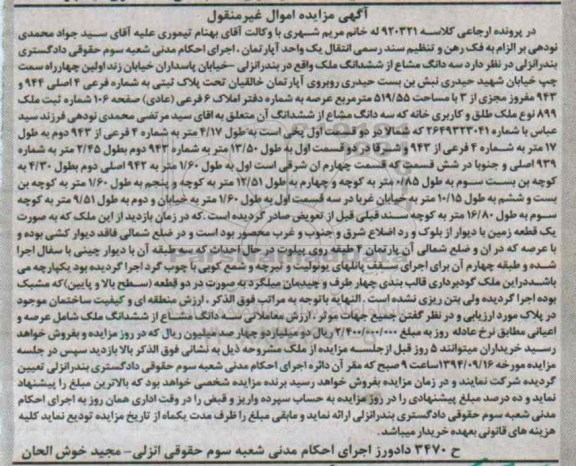 آگهی مزایده اموال غیرمنقول
در پرونده ارجاعی کلاسه ۹۲۰۳۲۱ له خانم مریم شهری با وکالت آقای بهنام تیموری علیه آقای سید جواد محمدی
نودهی بر الزام به فک رهن و تنظیم سند رسمی انتقال یک واحد آپارتمان، اجرای احکام مدنی شعبه سوم حقوقی دادگستری
بندرانزلی در نظر دارد سه دانگ مشاع از ششدانگ ملک واقع در بندرانزلی -خیابان پاسداران خیابان زند اولین چهارراه سمت
چپ خیابان شهید حیدری نبش بن بست حیدری روبروی آپارتمان خالقیان تحت پلاک ثبتی به شماره فرعی ۴ اصلی ۹۴۴ و
۹۴۳ مفروز مجزی از ۳ با مساحت ۵۱۹/۵۵ مترمربع عرصه به شماره دفتر املاک ۶ فرعی (عادی) صفحه ۱۰۶ شماره ثبت ملک
۸۹۹ نوع ملک طلق و کاربری خانه که سه دانگ مشاع از ششدانگ آن متعلق به آقای سید مرتضی محمدی نودهی فرزند سید
عباس با شماره ۲۶۴۹۳۲۳۰۴۱ که شمالا در دو قسمت اول یخی است به طول ۴/۱۷ متر به شماره ۴ فرعی از ۹۴۳ دوم به طول
۱۷ متر به شماره ۴ فرعی از ۹۴۳ و شرقا در دو قسمت اول به طول ۱۳/۵۰ متر به شماره ۹۴۳ دوم بطول ۲/۴۵ متر به شماره
۹۳۹ اصلی و جنوبا در شش قسمت که قسمت چهارم آن شرقی است اول به طول ۱/۶۰ متر به ۹۴۲ اصلی دوم بطول ۴/۳۰ به
کوچه بن بست سوم به طول ۰/۸۵ متر به کوچه و چهارم به طول ۱۲/۵۱ متر به کوچه و پنجم به طول ۱/۶۰ متر به کوچه بن
بست و ششم به طول ۱۰/۱۵ متر به خیابان غربا در سه قسمت اول به طول ۱/۶۰ متر به خیابان و دوم به طول ۹/۵۱ متر به کوچه
سوم به طول ۱۶/۸۰ متر به کوچه سند قبلی قبل از تعویض صادر گردیده است .که در زمان بازدید از این ملک که به صورت
یک قطعه زمین با دیوار از بلوک و رد اضلاع شرق و جنوب و غرب محصور بود است و در ضلع شمالی فاقد دیوار کشی بوده و
با عرصه که در ان و ضلع شمالی آن پارتمان ۴ طبقه روی پیلوت در حال احداث که سه طبقه آن با دیوار چینی با سفال اجرا
شده و طبقه چهارم آن برای اجرای سقف پانلهای یونولیت و تیرچه و شمع کوبی با چوب گرد اجرا گردیده بود یکپارچه می
باشددراین ملک گودبرداری قالب بندی چهار طرف و چیدمان میلگرد به صورت در دو قطعه (سطح بالا و پایین)که مشبک
بوده اجرا گردیده ولی بتن ریزی نشده است . النهایه باتوجه به مراتب فوق الذکر ، ارزش منطقه ای و کیفیت ساختمان موجود
در پلاک مورد ارزیابی و در نظر گفتن جمیع جهات موثر ، ارزش معاملاتی سه دانگ مشاع از ششدانگ ملک شامل عرصه و
اعیانی مطابق نرخ عادله روز به مبلغ ۲/۴۰۰/۰۰۰/۰۰۰ ریال دو میلیارد و چهار صد میلیون ریال که در روز مزایده و بفروش خواهد
رسید خریداران میتوانند ۵ روز قبل از جلسه مزایده از ملک مشروحه ذیل به نشانی فوق الذکر بالا بازدید سپس در جلسه
مزایده مورخه ۱۳۹۴/۰۹/۱۶ ساعت ۹ صبح که مقر آن دائره اجرای احکام مدنی شعبه سوم حقوقی دادگستری بندرانزلی تعیین
گردیده شرکت نمایند و در زمان مزایده بفروش خواهد رسید برنده مزایده شخصی خواهد بود که بالاترین مبلغ را پیشنهاد
نماید و ده درصد مبلغ پیشنهادی را در روز مزایده به حساب سپرده واریز و قبض را در وقت اداری همان روز به اجرای احکام
مدنی شعبه سوم حقوقی دادگستری بندرانزلی ارائه نماید و مابقی مبلغ را ظرف مدت یکماه از تاریخ مزایده تودیع نماید کلیه
هزینه های قانونی بعهده خریدار میباشد.
ح ۳۴۷۰ دادورز اجرای احکام مدنی شعبه سوم حقوقی انزلی- مجید خوش الحان